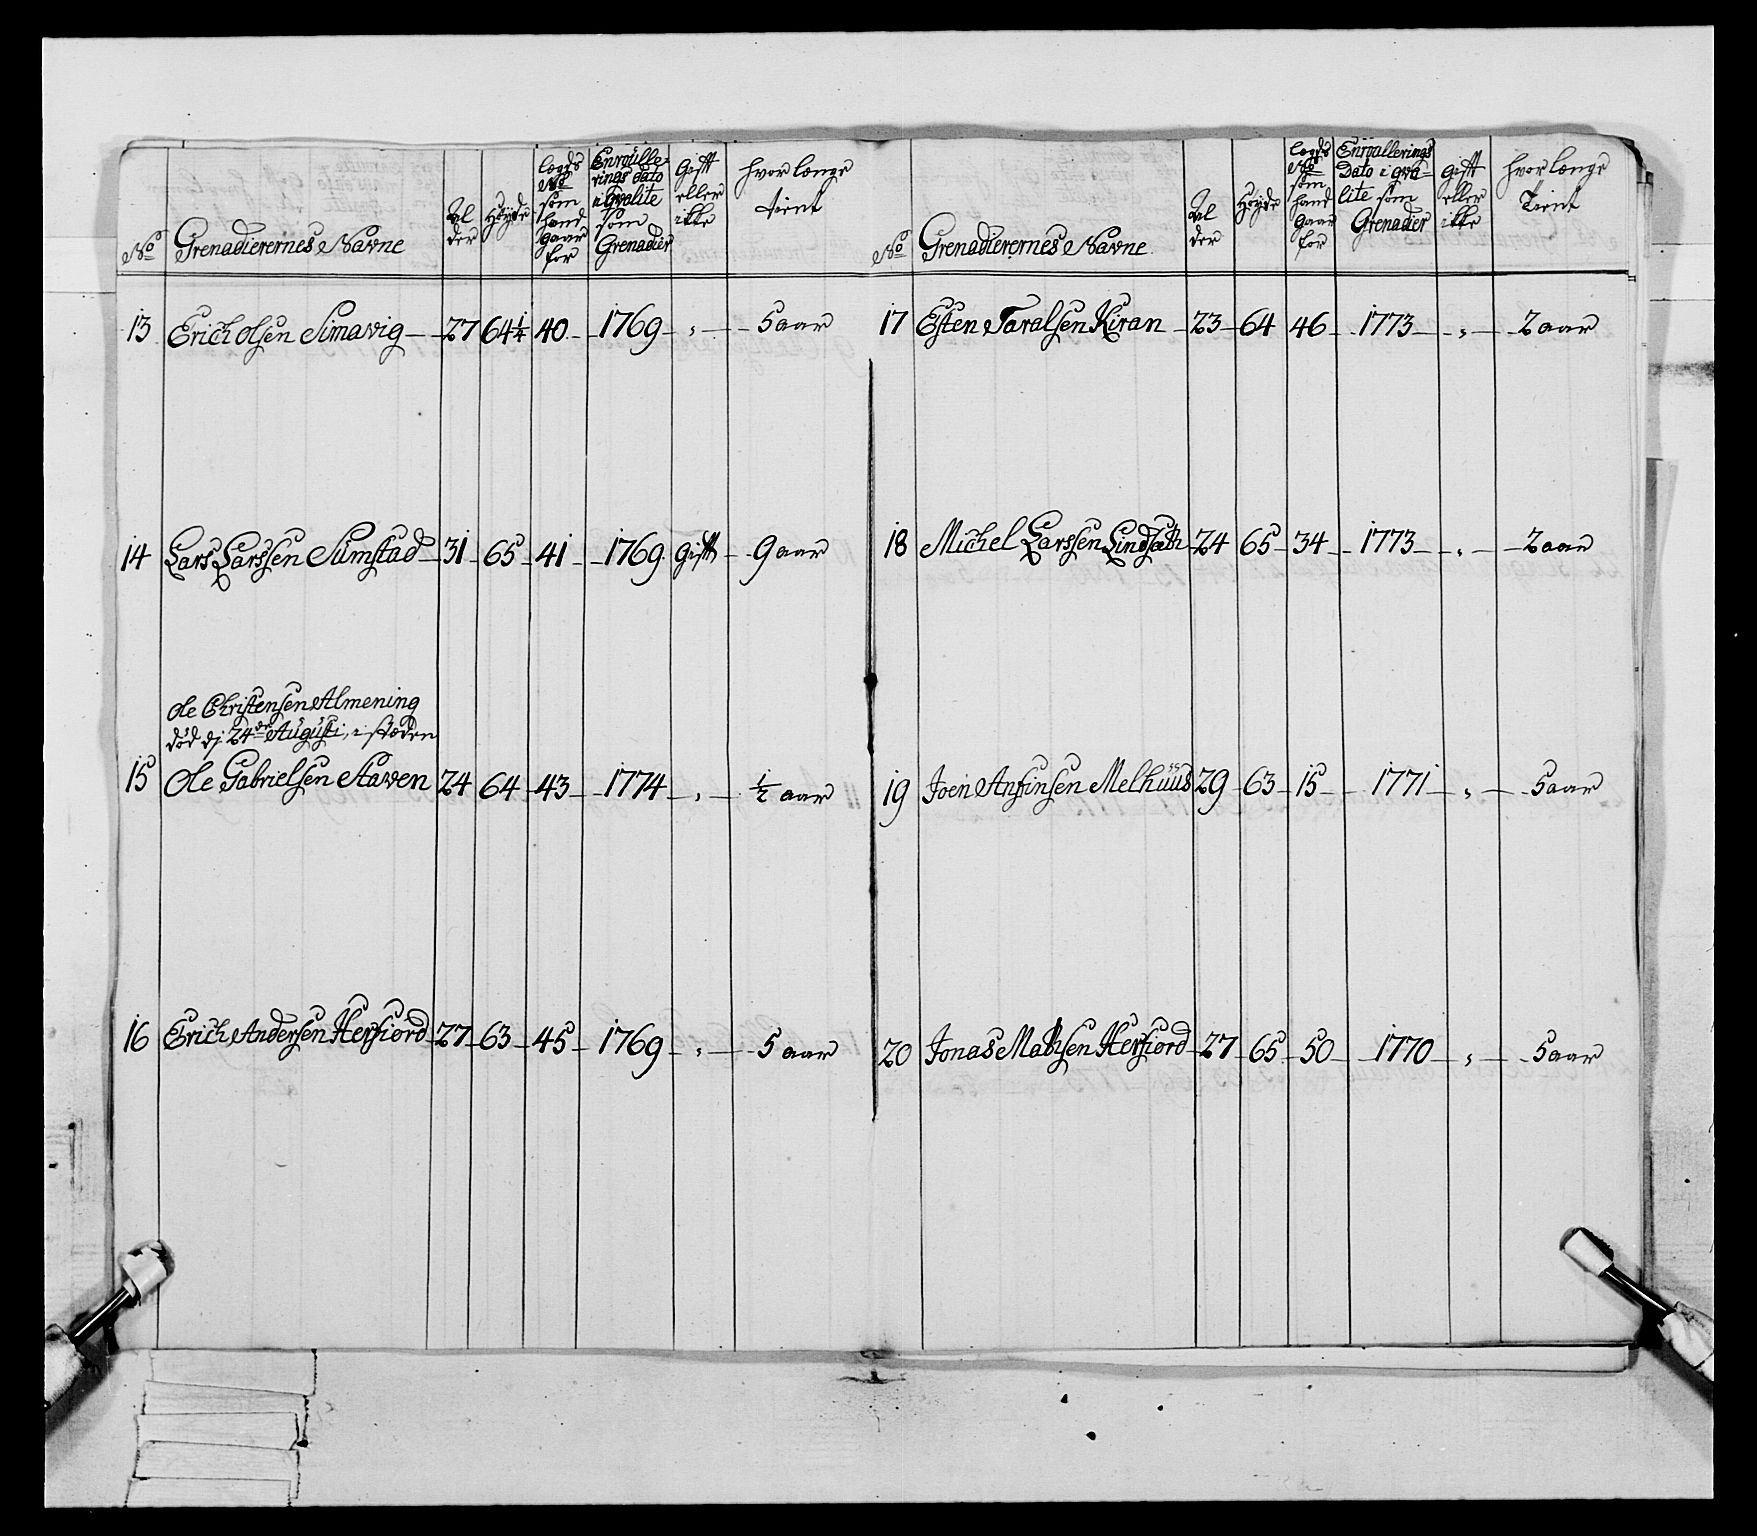 No Grenadierernes Navne Alder Høyde Legds No som hand gaar for Enroullerings dato i qvalite som Grenadier Gift eller ikke hvor længe tient
13 Erich Olsen Simavig 27 64¼ 40 1769 „ 5 aar
14 Lars Larssen Sumstad 31 65 41 1769 Gift 9 aar
Ole Christensen Almening
død dj 24de Augusti, i stæden
15 Ole Gabrielsen Stawen 24 64 43 1774 „ ½ aar
16 Erich Andersen Herfiord 27 63 45 1769 „ 5 aar
No Grenadierernes Navne Alder Høyde Legds No som hand gaar for Enroullerings Dato i qvalite som Grenadier Gift eller ikke hvor længe Tient
17 Esten Taralsen Kiran 23 64 46 1773 „ 2 aar
18 Michel Larssen 24 65 34 1773 „ 2 aar
19 Joen Anfinsen Melhuus 29 63 15 1771 „ 5 aar
20 Jonas Madsen Herfiord 27 65 50 1770 „ 5 aar